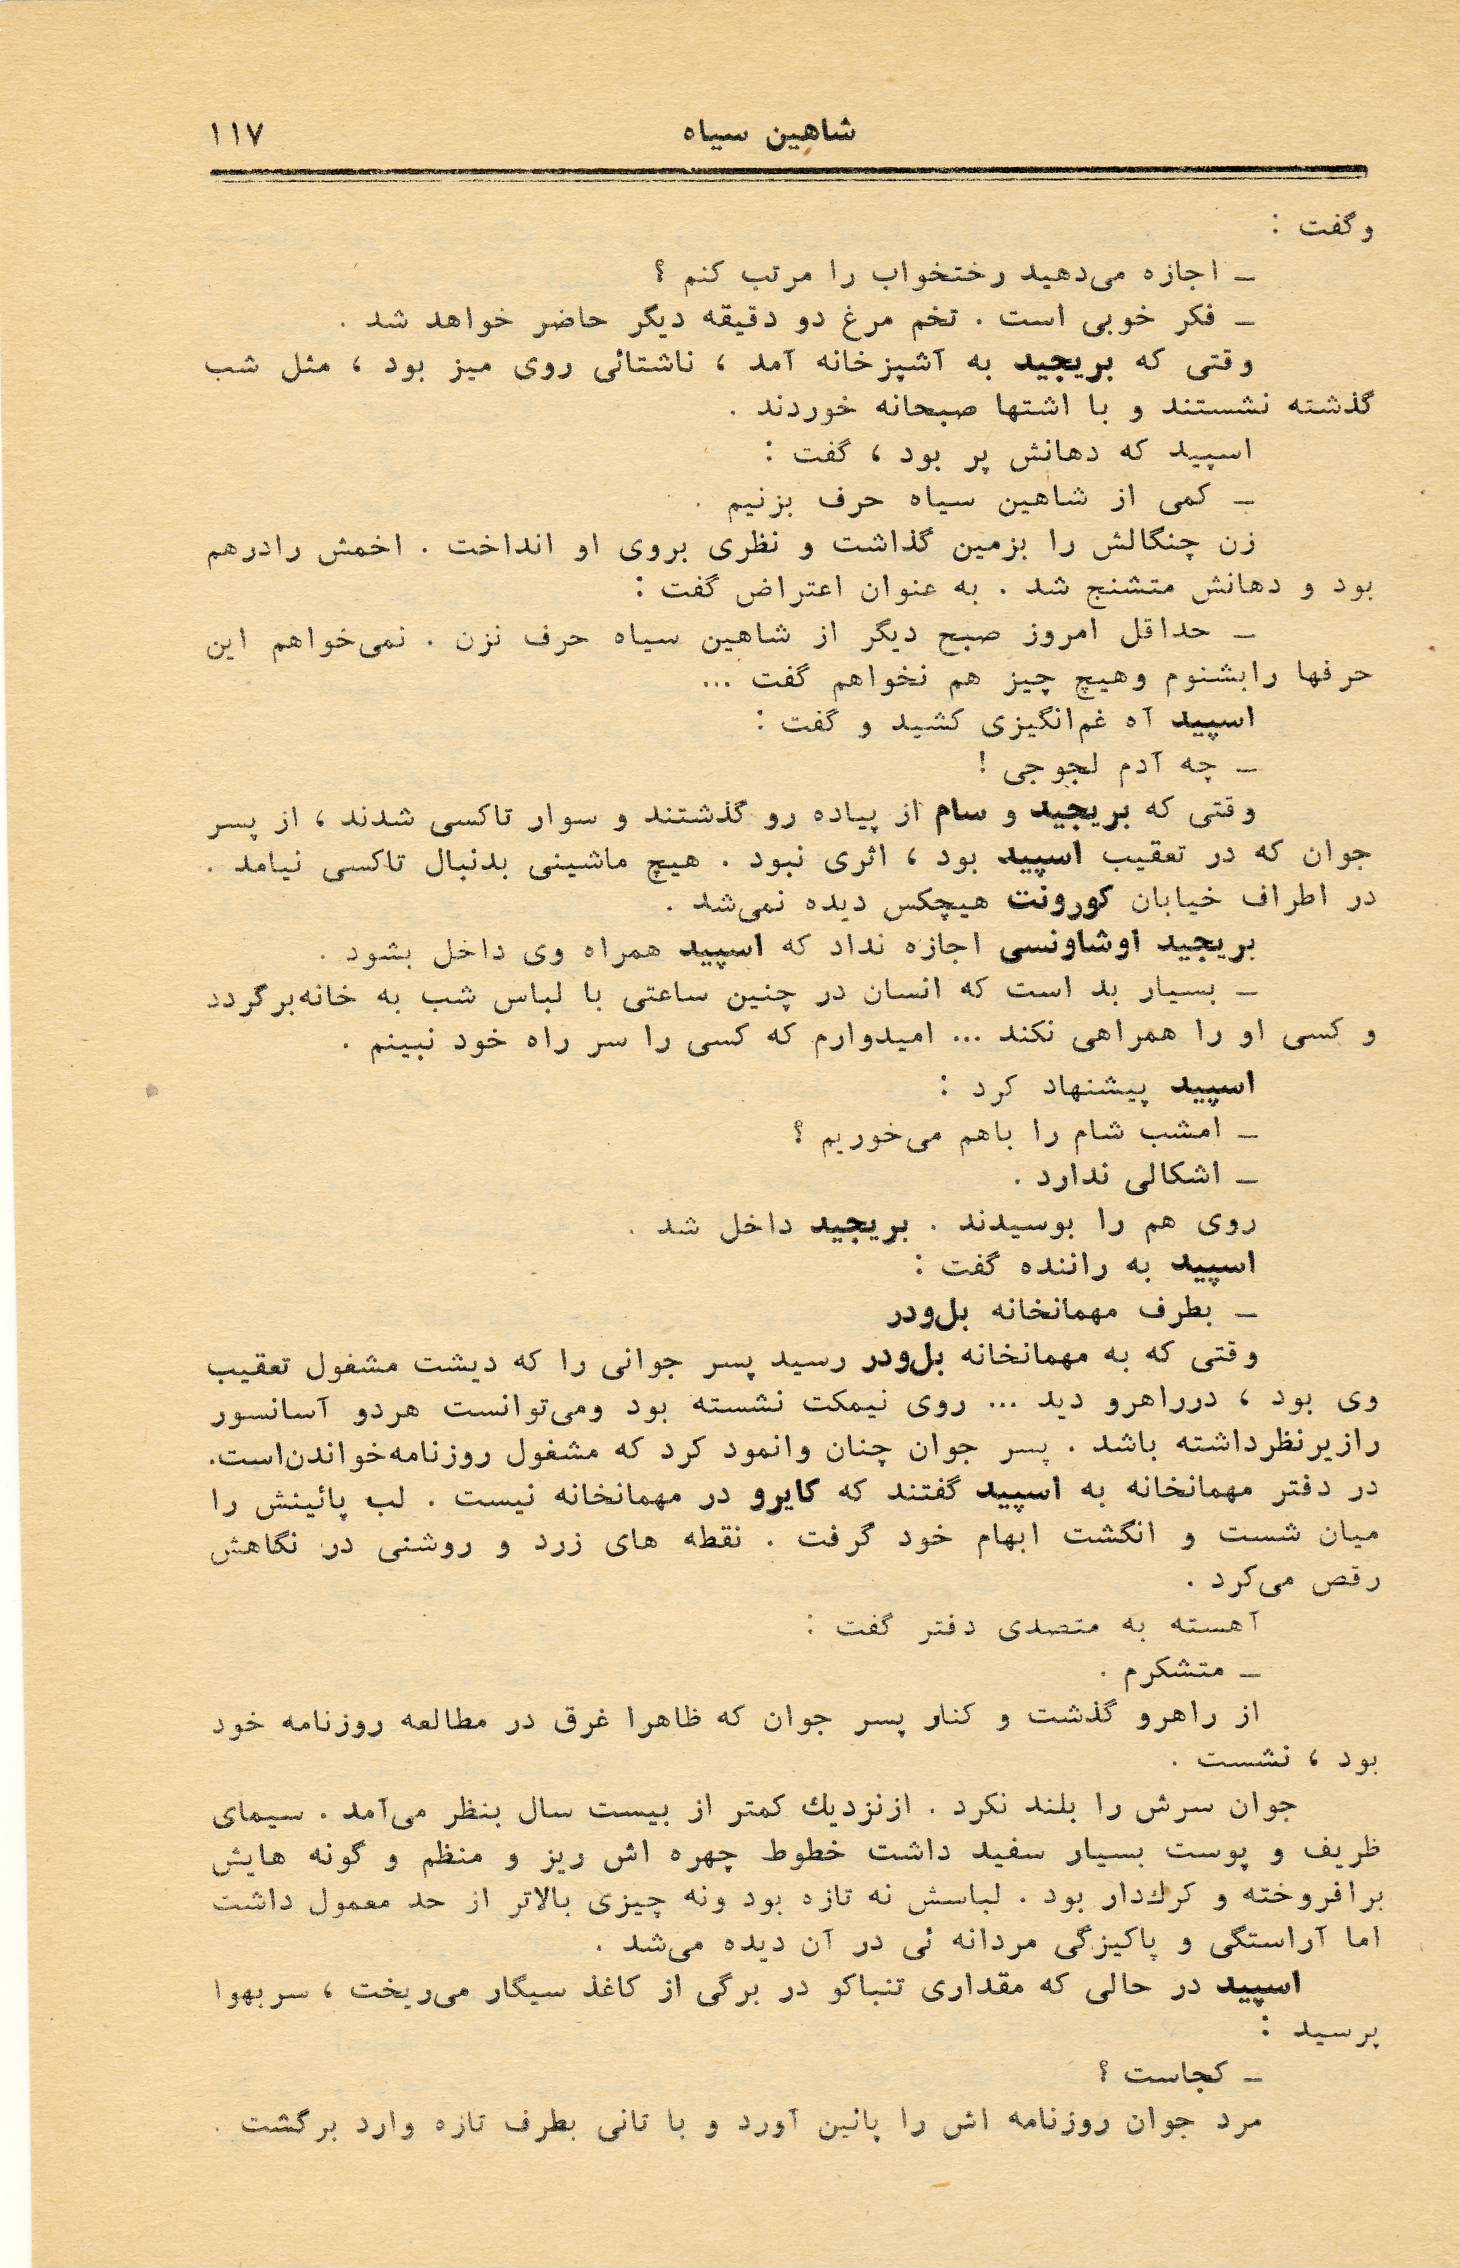 شاهین سیاه ۱۱۷
وگفت :
ـ اجازه می‌دهید رختخواب را مرتب کنم ؟
ـ فکر خوبی است . تخم مرغ دو دقیقه دیگر حاضر خواهد شد .
وقتی که بریجید به آشپزخانه آمد ، ناشتائی روی میز بود ، مثل شب
گذشته نشستند و با اشتها صبحانه خوردند .
اسپید که دهانش پر بود ، گفت :
ـ کمی از شاهین سیاه حرف بزنیم .
زن چنگالش را بزمین گذاشت و نظری بروی او انداخت . اخمش رادرهم
بود و دهانش متشنج شد . به عنوان اعتراض گفت :
ـ حداقل امروز صبح دیگر از شاهین سیاه حرف نزن . نمی‌خواهم این
حرفها رابشنوم وهیچ چیز هم نخواهم گفت ...
اسپید آه غم‌انگیزی کشید و گفت :
ـ چه آدم لجوجی !
وقتی که بریجید و سام از پیاده رو گذشتند و سوار تاکسی شدند ، از پسر
جوان که در تعقیب اسپید بود ، اثری نبود . هیچ ماشینی بدنبال تاکسی نیامد .
در اطراف خیابان کورونت هیچکس دیده نمی‌شد .
بریجید اوشاونسی اجازه نداد که اسپید همراه وی داخل بشود .
ـ بسیار بد است که انسان در چنین ساعتی با لباس شب به خانه‌برگردد
و کسی او را همراهی نکند ... امیدوارم که کسی را سر راه خود نبینم .
اسپید پیشنهاد کرد :
ـ امشب شام را باهم می‌خوریم ؟
ـ اشکالی ندارد .
روی هم را بوسیدند . بریجید داخل شد .
اسپید به راننده گفت :
ـ بطرف مهمانخانه بل‌ودر
وقتی که به مهمانخانه بل‌ودر رسید پسر جوانی را که دیشت مشغول تعقیب
وی بود ، درراهرو دید ... روی نیمکت نشسته بود ومی‌توانست هردو آسانسور
رازیرنظرداشته باشد . پسر جوان چنان وانمود کرد که مشغول روزنامه‌خواندن‌است.
در دفتر مهمانخانه به اسپید گفتند که کایرو در مهمانخانه نیست . لب پائینش را
میان شست و انگشت ابهام خود گرفت . نقطه های زرد و روشنی در نگاهش
رقص می‌کرد .
آهسته به متصدی دفتر گفت :
ـ متشکرم .
از راهرو گذشت و کنار پسر جوان که ظاهرا غرق در مطالعه روزنامه خود
بود ، نشست .
جوان سرش را بلند نکرد . ازنزدیك کمتر از بیست سال بنظر می‌آمد . سیمای
ظریف و پوست بسیار سفید داشت خطوط چهره اش ریز و منظم و گونه هایش
برافروخته و کرك‌دار بود . لباسش نه تازه بود ونه چیزی بالاتر از حد معمول داشت
اما آراستگی و پاکیزگی مردانه ئی در آن دیده می‌شد .
اسپید در حالی که مقداری تنباکو در برگی از کاغذ سیگار می‌ریخت ، سربهوا
پرسید :
ـ کجاست ؟
مرد جوان روزنامه اش را پائین آورد و با تانی بطرف تازه وارد برگشت .